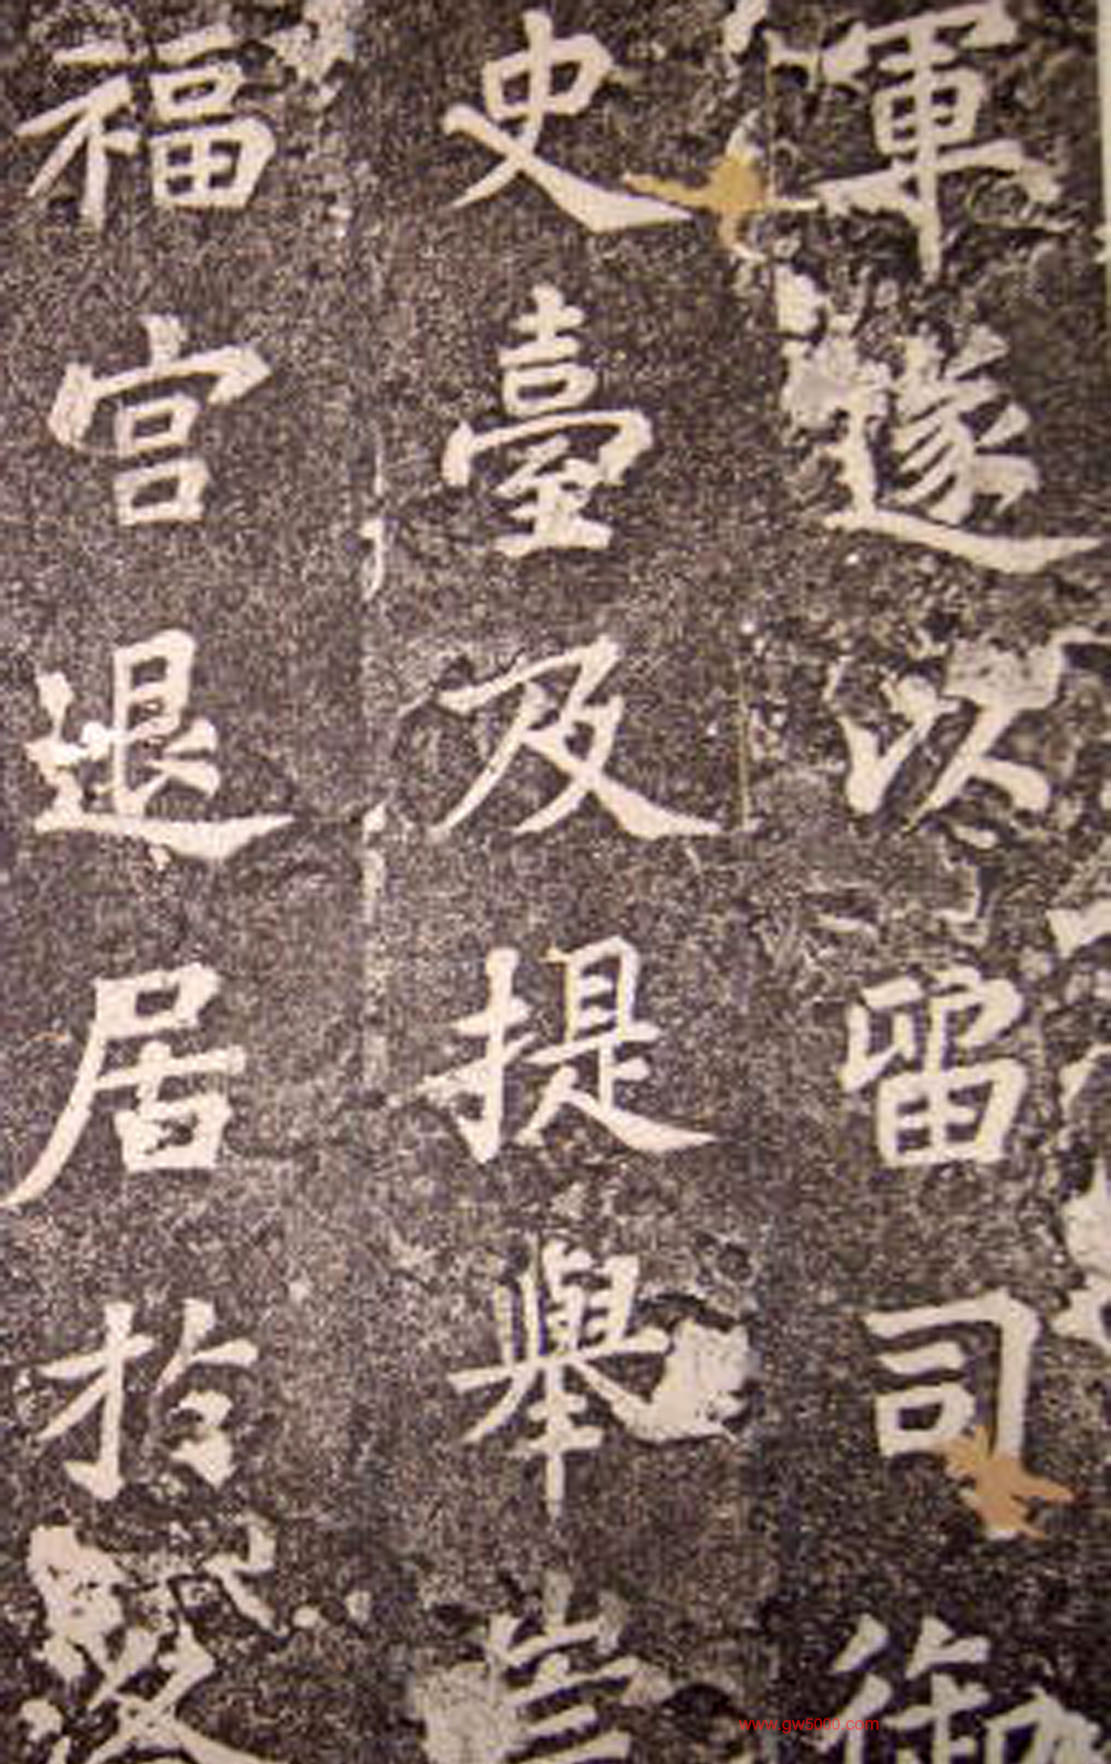 軍遂以留司御
史臺及提舉崇
福宮退居扵
www.gw5000.com